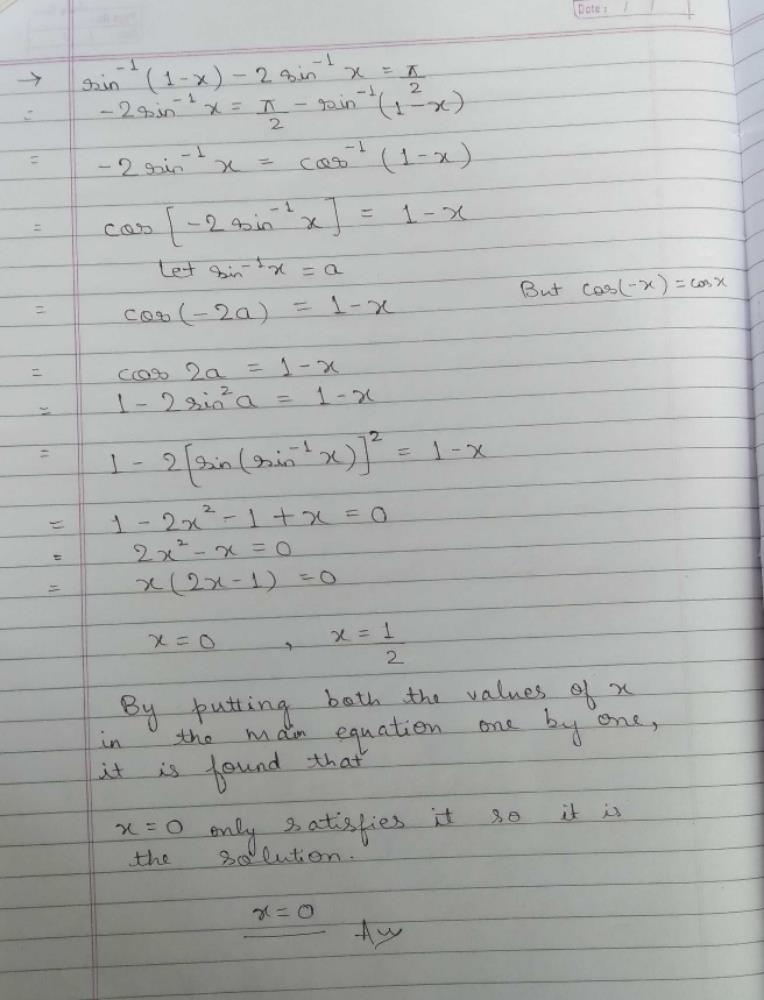 Date: / /
→ sin⁻¹(1-x) - 2 sin⁻¹ x = π/2
= -2 sin⁻¹ x = π/2 - sin⁻¹(1-x)
= -2 sin⁻¹ x = cos⁻¹ (1-x)
= cos [-2 sin⁻¹ x] = 1-x
Let sin⁻¹x = a
= cos(-2a) = 1-x But cos(-x) = cosx
= cos 2a = 1-x
= 1-2 sin²a = 1-x
= 1 - 2[sin(sin⁻¹ x)]² = 1-x
= 1 - 2x² - 1 + x = 0
= 2x² - x = 0
= x(2x-1) = 0
x = 0 , x = 1/2
By putting both the values of x
in the main equation one by one,
it is found that
x = 0 only satisfies it so it is
the solution.
x = 0 Ans